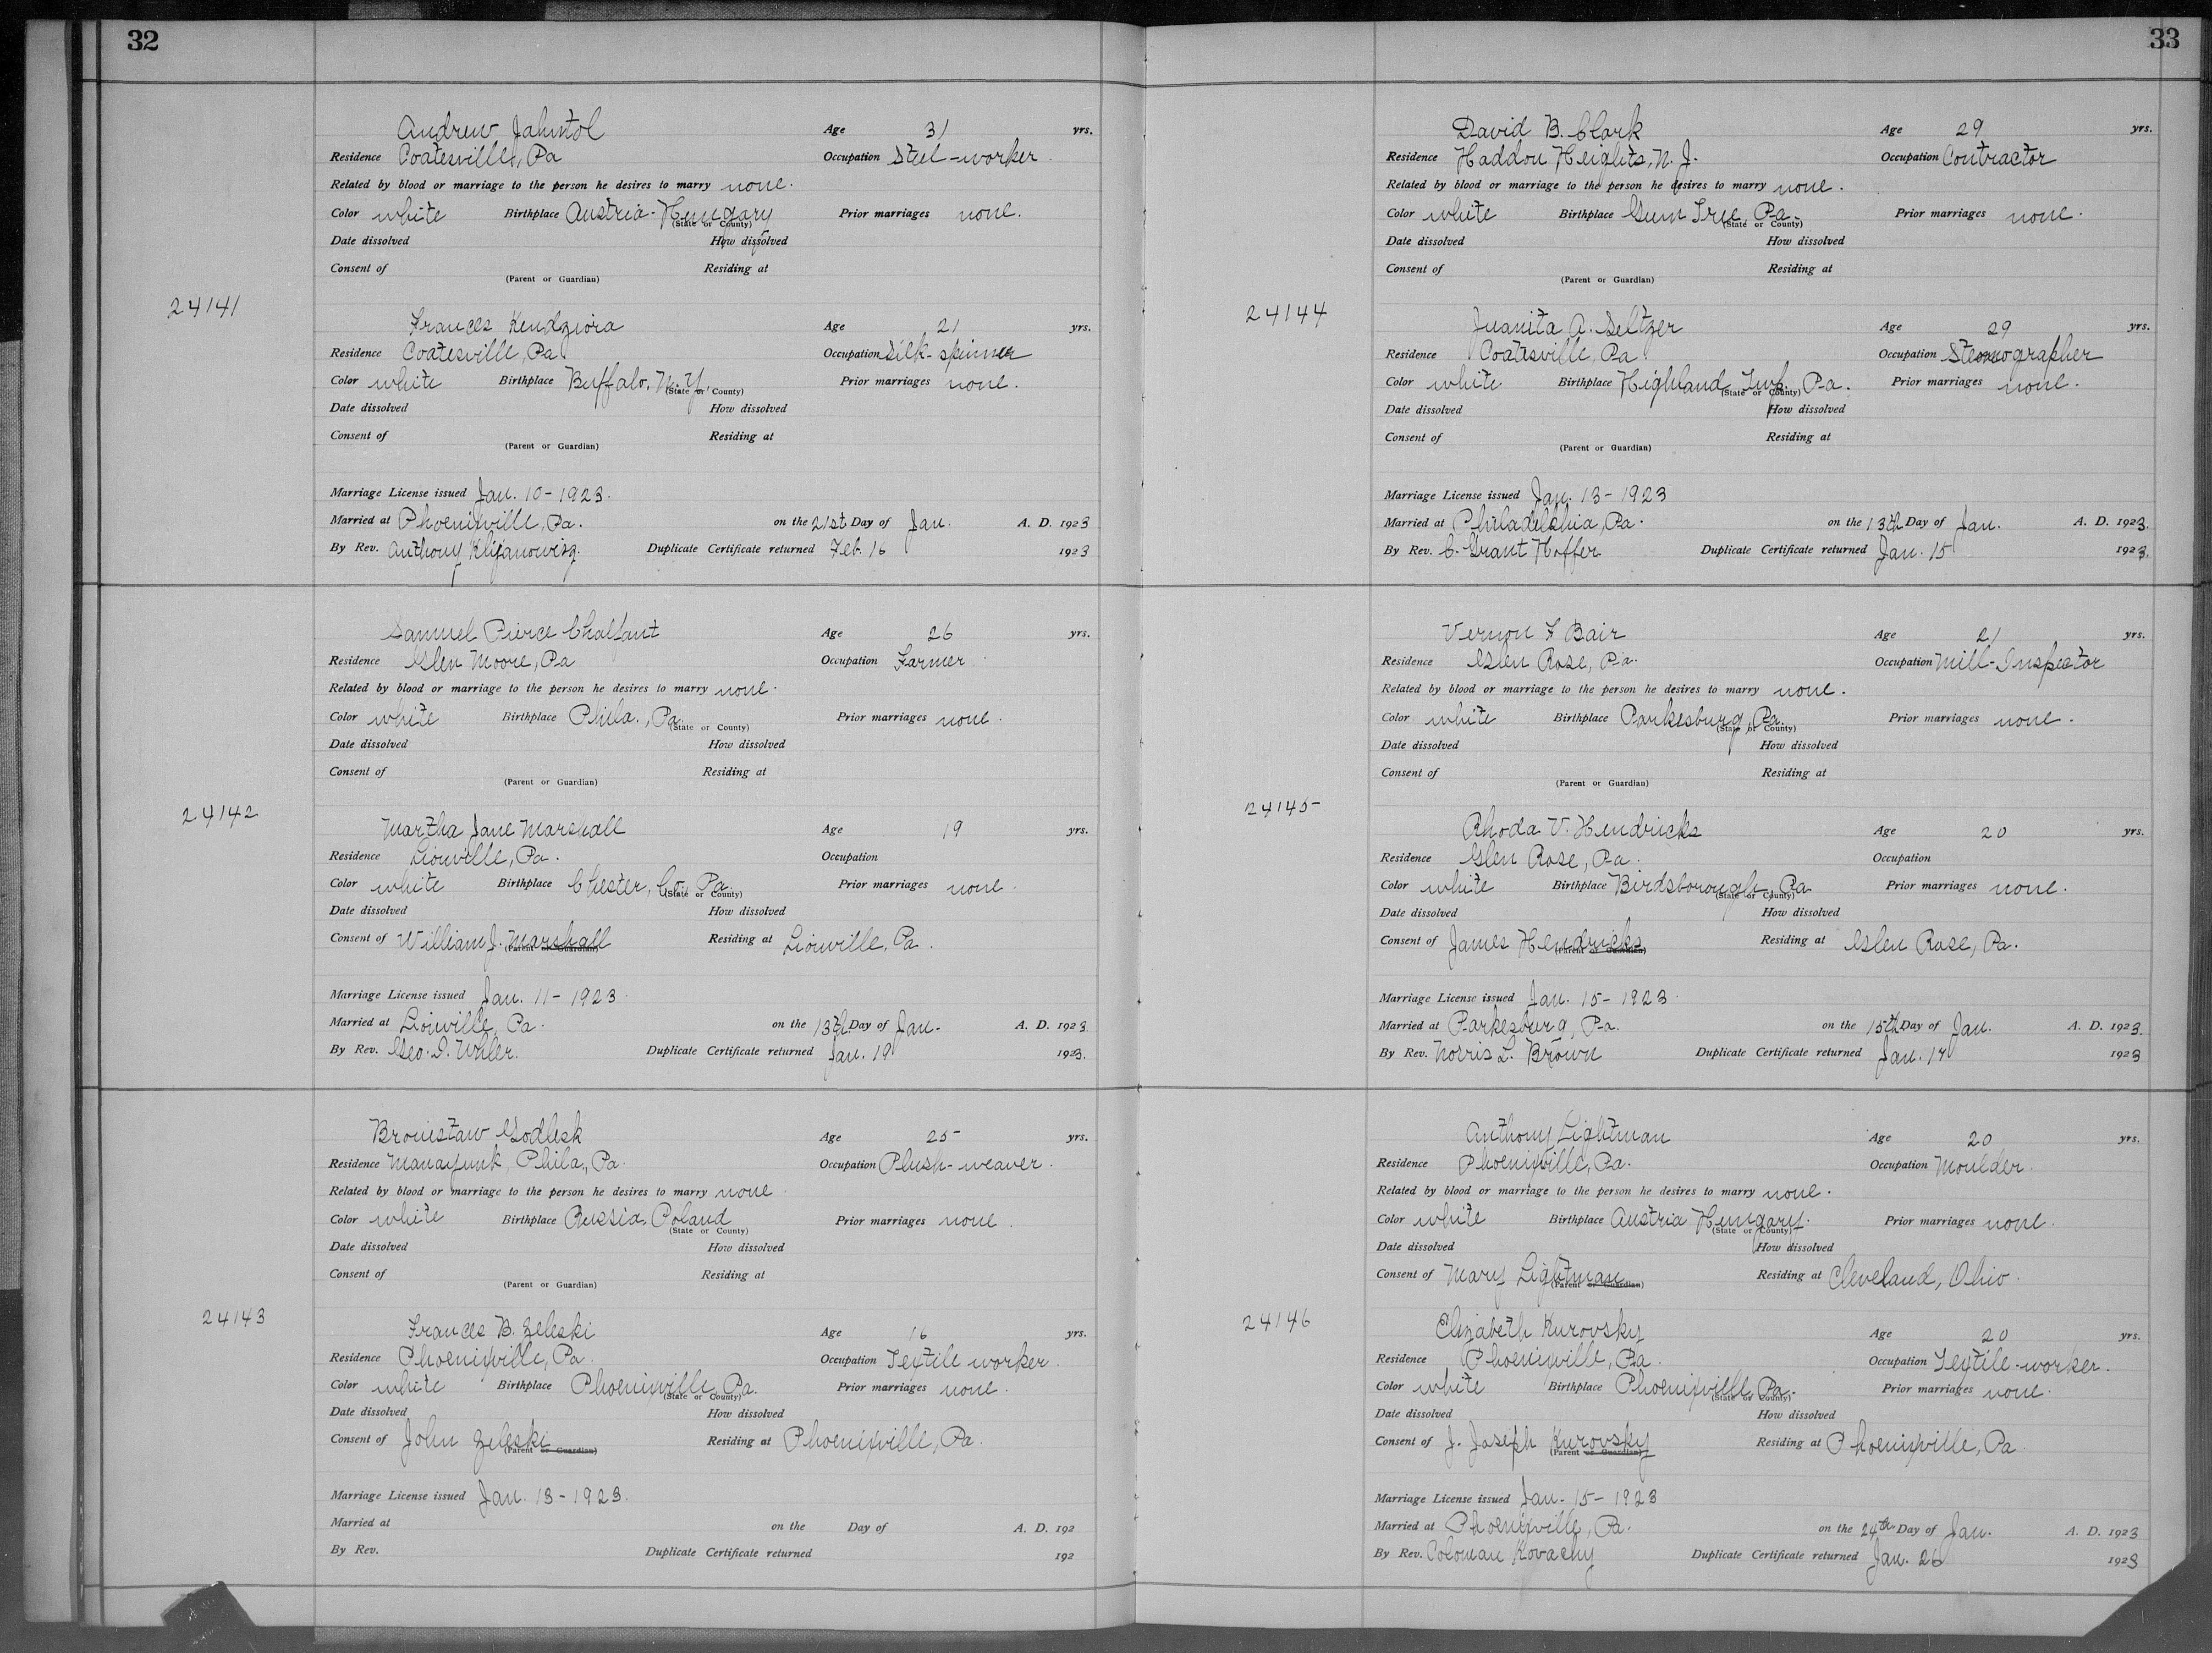 32
24141
Andrew Jahntol Age 31 yrs.
Residence Coatesville, Pa Occupation Steel-worker.
Related by blood or marriage to the person he desires to marry none.
Color white Birthplace Austria-Hungary Prior marriages none.
(State or County)
Date dissolved How dissolved
Consent of Residing at
(Parent or Guardian)
Frances Kendziora Age 21 yrs.
Residence Coatesville, Pa Occupation Silk-spinner
Color white Birthplace Buffalo, N.Y. Prior marriages none.
(State or County)
Date dissolved How dissolved
Consent of Residing at
(Parent or Guardian)
Marriage License issued Jan. 10-1923.
Married at Phoenixville, Pa. on the 21st Day of Jan. A. D. 1923
By Rev. Anthony Duplicate Certificate returned Feb. 16 1923
24142
Samuel Pierce Chalfant Age 26 yrs.
Residence Glen Moore, Pa Occupation Farmer
Related by blood or marriage to the person he desires to marry none.
Color white Birthplace Phila., Pa. Prior marriages none.
(State or County)
Date dissolved How dissolved
Consent of Residing at
(Parent or Guardian)
Martha Jane Marshall Age 19 yrs.
Residence Lionville, Pa. Occupation
Color white Birthplace Chester, Co., Pa. Prior marriages none.
(State or County)
Date dissolved How dissolved
Consent of William J. Marshall Residing at Lionville, Pa.
(Parent or Guardian)
Marriage License issued Jan. 11-1923.
Married at Lionville, Pa. on the 13th Day of Jan. A. D. 1923
By Rev. Geo. I. Uhler. Duplicate Certificate returned Jan. 19 1923.
24143
Bronistaw Godlesk Age 25 yrs.
Residence Manayunk, Phila., Pa. Occupation Plush-weaver.
Related by blood or marriage to the person he desires to marry none.
Color white Birthplace Russia, Poland Prior marriages none.
(State or County)
Date dissolved How dissolved
Consent of Residing at
(Parent or Guardian)
Frances B. Zeleski Age 16 yrs.
Residence Phoenixville, Pa. Occupation Textile worker.
Color white Birthplace Phoenixville, Pa. Prior marriages none.
(State or County)
Date dissolved How dissolved
Consent of John Zeleski Residing at Phoenixville, Pa.
(Parent or Guardian)
Marriage License issued Jan. 13-1923.
Married at on the Day of A. D. 192
By Rev. Duplicate Certificate returned 192
33
24144
David B. Clark Age 29 yrs.
Residence Haddon Heights, N. J. Occupation Contractor
Related by blood or marriage to the person he desires to marry none.
Color white Birthplace Gum Tree, Pa. Prior marriages none.
(State or County)
Date dissolved How dissolved
Consent of Residing at
(Parent or Guardian)
Juanita A. Seltzer Age 29 yrs.
Residence Coatesville, Pa Occupation Stenographer
Color white Birthplace Highland Twp. Pa. Prior marriages none.
(State or County)
Date dissolved How dissolved
Consent of Residing at
(Parent or Guardian)
Marriage License issued Jan. 13-1923
Married at Philadelphia, Pa. on the 13th Day of Jan. A. D. 1923.
By Rev. C. Grant Hoffer Duplicate Certificate returned Jan. 15 1923.
24145
Vernon F Bair Age 21 yrs.
Residence Glen Rose, Pa. Occupation Mill-Inspector
Related by blood or marriage to the person he desires to marry none.
Color white Birthplace Parkesburg, Pa. Prior marriages none.
(State or County)
Date dissolved How dissolved
Consent of Residing at
(Parent or Guardian)
Rhoda V. Hendricks Age 20 yrs.
Residence Glen Rose, Pa. Occupation
Color white Birthplace Birdsborough, Pa Prior marriages none.
(State or County)
Date dissolved How dissolved
Consent of James Hendricks Residing at Glen Rose, Pa.
(Parent or Guardian)
Marriage License issued Jan. 15-1923.
Married at Parkesburg, Pa. on the 15th Day of Jan. A. D. 1923.
By Rev. Norris L. Brown Duplicate Certificate returned Jan. 17 1923
24146
Anthony Lightman Age 20 yrs.
Residence Phoenixville, Pa. Occupation Moulder.
Related by blood or marriage to the person he desires to marry none.
Color white Birthplace Austria Hungary. Prior marriages none.
(State or County)
Date dissolved How dissolved
Consent of Mary Lightman Residing at Cleveland, Ohio.
(Parent or Guardian)
Elizabeth Kurovsky Age 20 yrs.
Residence Phoenixville, Pa. Occupation Textile-worker.
Color white Birthplace Phoenixville, Pa. Prior marriages none.
(State or County)
Date dissolved How dissolved
Consent of J. Joseph Kurovsky Residing at Phoenixville, Pa
(Parent or Guardian)
Marriage License issued Jan. 15-1923
Married at Phoenixville, Pa. on the 24th Day of Jan. A. D. 1923
By Rev. Coloman Kovachy Duplicate Certificate returned Jan. 26 1923